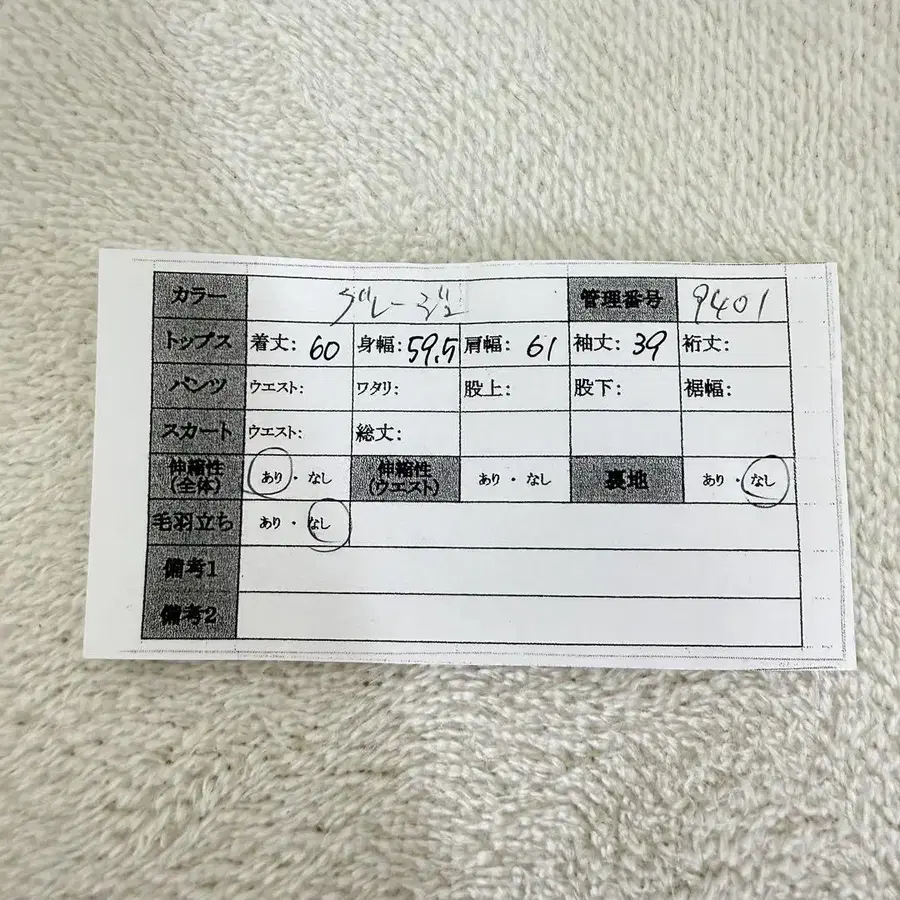 カラー グレージュ 管理番号 9401
トップス 着丈: 60 身幅: 59.5 肩幅: 61 袖丈: 39 裄丈:
パンツ ウエスト: ワタリ: 股上: 股下: 裾幅:
スカート ウエスト: 総丈:
伸縮性(全体) あり・なし 伸縮性(ウエスト) あり・なし 裏地 あり・なし
毛羽立ち あり・なし
備考1
備考2